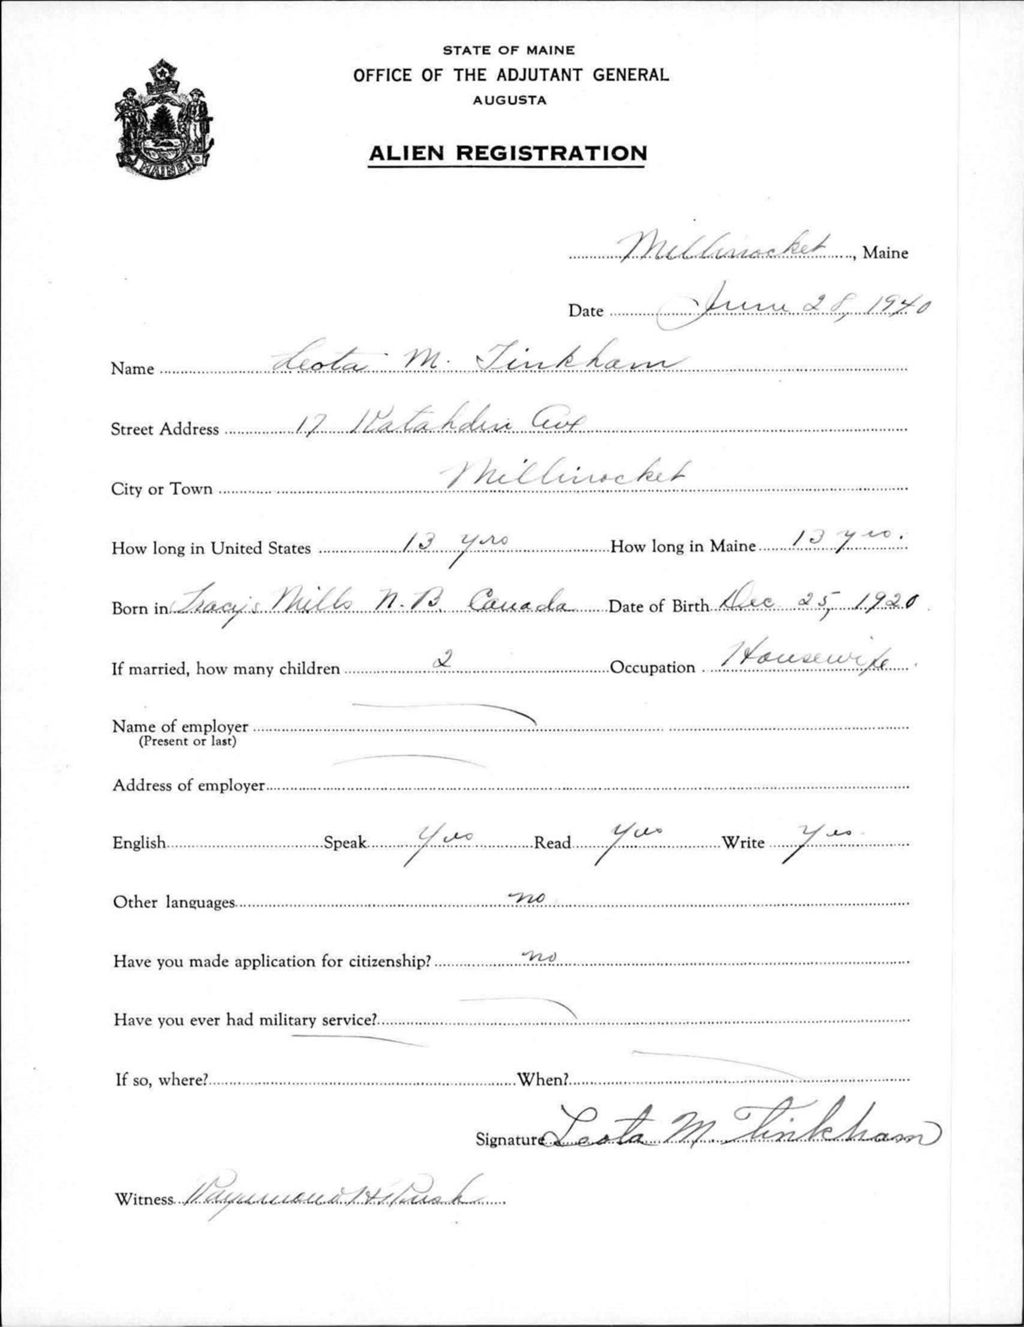 STATE OF MAINE
OFFICE OF THE ADJUTANT GENERAL
AUGUSTA
ALIEN REGISTRATION
MAINE
Millinocket, Maine
Date June 28, 1940
Name Leota M. Tinkham
Street Address 17 Katahdin Ave
City or Town Millinocket
How long in United States 13 yrs How long in Maine 13 yrs.
Born in Tracy's Mills N.B. Canada Date of Birth Dec 25, 1920
If married, how many children 2 Occupation Housewife
Name of employer
(Present or last)
Address of employer
English Speak Yes Read Yes Write Yes
Other languages no
Have you made application for citizenship? no
Have you ever had military service?
If so, where? When?
Signature Leota M. Tinkham
Witness Raymond H Rush